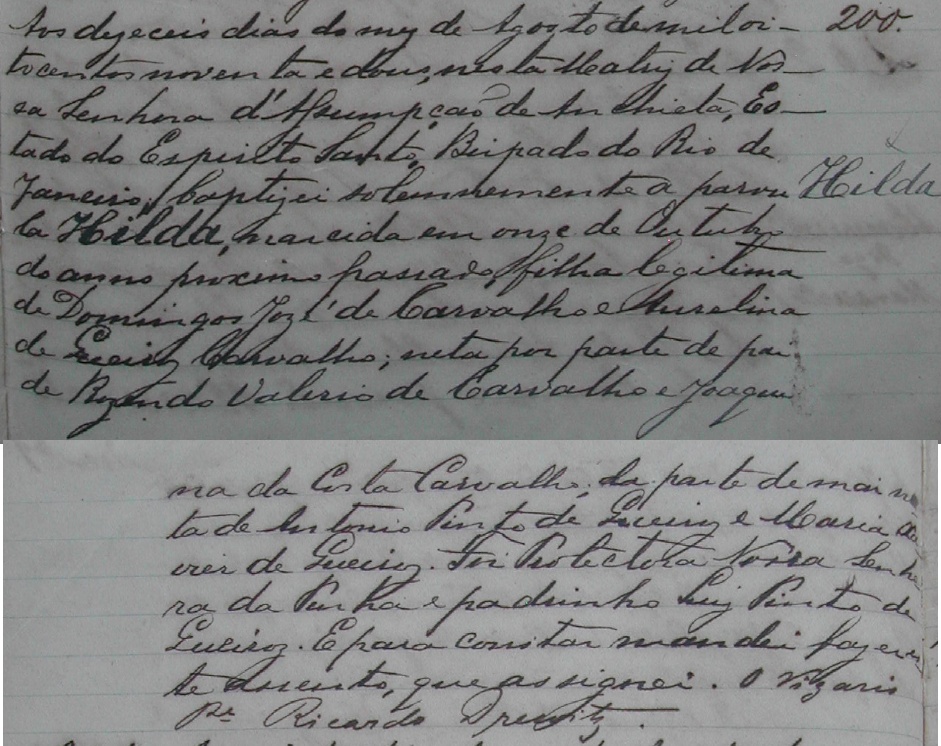 Aos dezeceis dias do mez de Agosto de mil oi- 200.
tocentos noventa e dous, nesta Matriz de Nos-
sa Senhora d'Assumpção de Anchieta, Es-
tado do Espirito Santo, Bispado do Rio de
Janeiro, baptizei solemnemente a parvu Hilda
la Hilda, nascida em onze de Outubro
do anno proximo passado, filha legitima
de Domingos Jozé de Carvalho e Aurelina
de Queiroz Carvalho; neta por parte de pai
de Rozendo Valerio de Carvalho e Joaqui
na da Costa Carvalho, da parte de mai ne
ta de Antonio Pinto de Queiroz e Maria
de Queiroz. Foi Protectora Nossa Senho
ra da Penha e padrinho Luiz Pinto de
Queiroz. E para constar mandei fazer es
te assento, que assignei. O Vigario
Pe. Ricardo Drewitz.